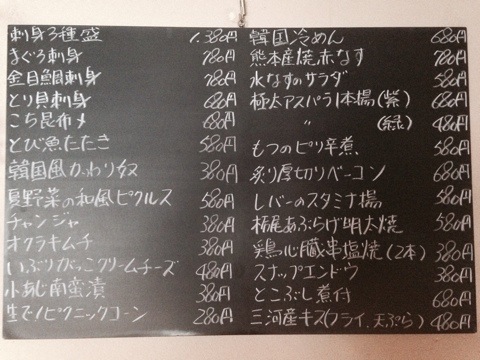 刺身3種盛 1,380円
まぐろ刺身 780円
金目鯛刺身 780円
とり貝刺身 680円
こち昆布〆 680円
とび魚たたき 580円
韓国風かわり奴 380円
夏野菜の和風ピクルス 580円
チャンジャ 380円
オクラキムチ 380円
いぶりがっこクリームチーズ 480円
小あじ南蛮漬 380円
生でノピクニックコーン 280円
韓国冷めん 680円
熊本産焼赤なす 780円
水なすのサラダ 580円
極太アスパラ1本揚(紫) 680円
〃 (緑) 480円
もつのピリ辛煮 580円
炙り厚切りベーコン 680円
レバーのスタミナ揚 580円
栃尾あぶらげ明太焼 580円
鶏心臓串塩焼(2本) 380円
スナップエンドウ 380円
とこぶし煮付 680円
三河産キス(フライ、天ぷら) 480円